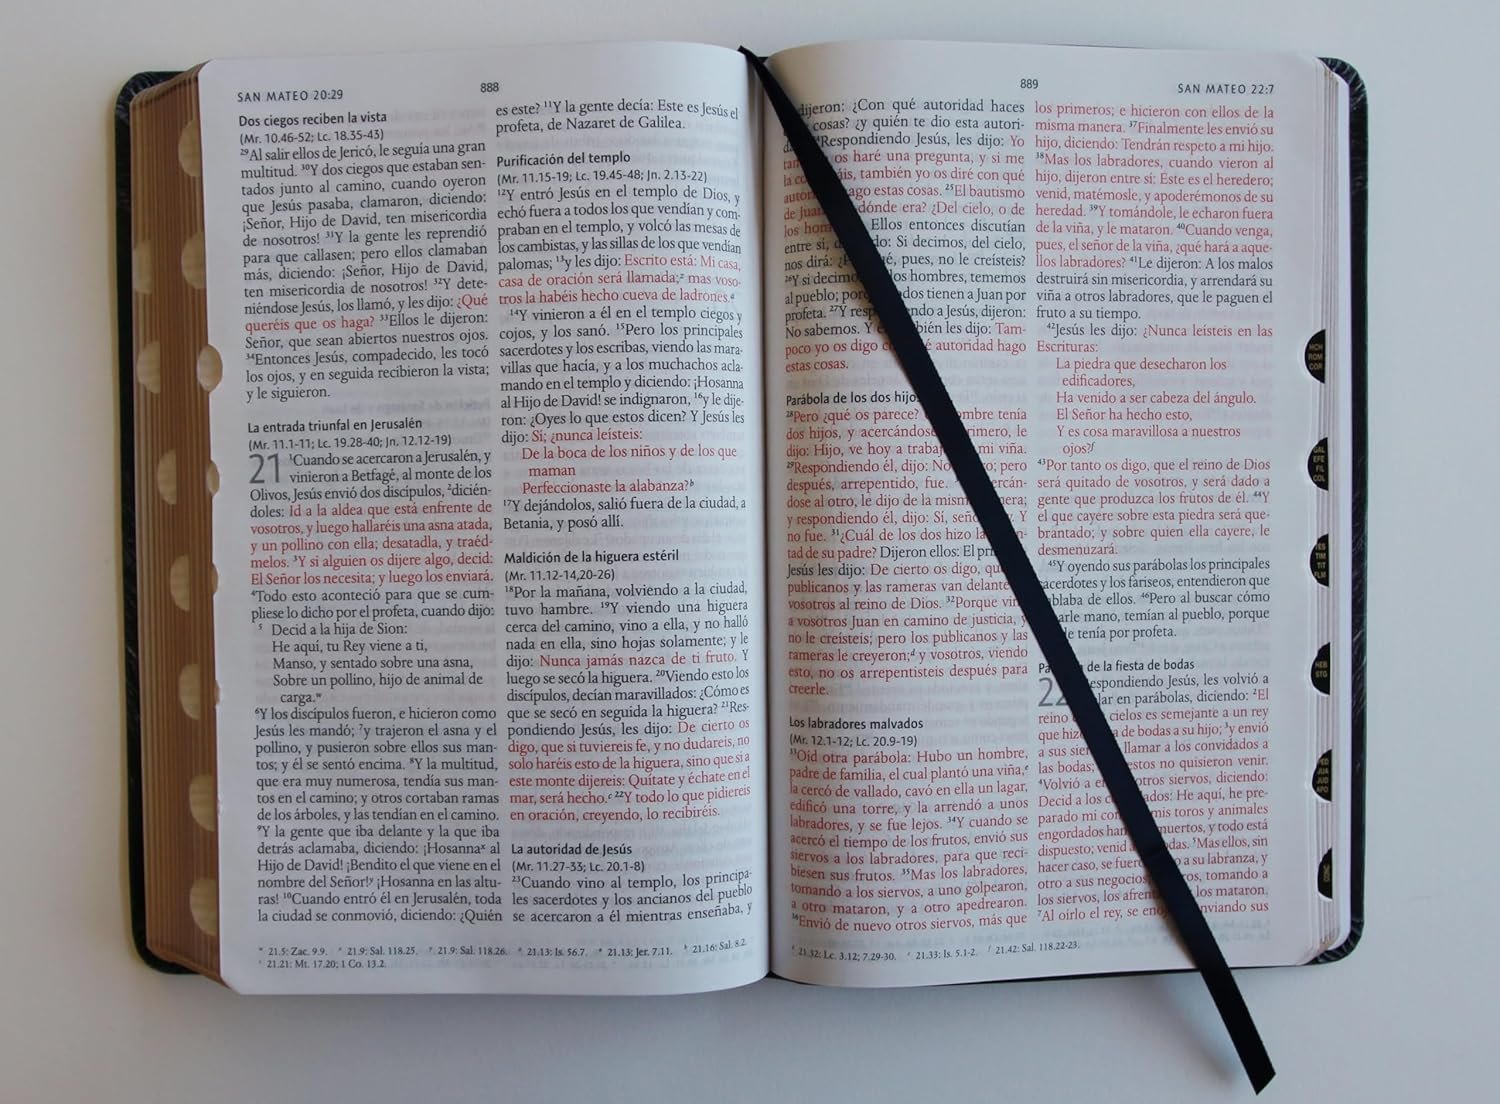 SAN MATEO 20:29
888
Dos ciegos reciben la vista
(Mr. 10.46-52; Lc. 18.35-43)
29Al salir ellos de Jericó, le seguía una gran
multitud. 30Y dos ciegos que estaban sen-
tados junto al camino, cuando oyeron
que Jesús pasaba, clamaron, diciendo:
¡Señor, Hijo de David, ten misericordia
de nosotros! 31Y la gente les reprendió
para que callasen; pero ellos clamaban
más, diciendo: ¡Señor, Hijo de David,
ten misericordia de nosotros! 32Y dete-
niéndose Jesús, los llamó, y les dijo: ¿Qué
queréis que os haga? 33Ellos le dijeron:
Señor, que sean abiertos nuestros ojos.
34Entonces Jesús, compadecido, les tocó
los ojos, y en seguida recibieron la vista;
y le siguieron.
La entrada triunfal en Jerusalén
(Mr. 11.1-11; Lc. 19.28-40; Jn. 12.12-19)
21 1Cuando se acercaron a Jerusalén, y
vinieron a Betfagé, al monte de los
Olivos, Jesús envió dos discípulos, 2dicién-
doles: Id a la aldea que está enfrente de
vosotros, y luego hallaréis una asna atada,
y un pollino con ella; desatadla, y traéd-
melos. 3Y si alguien os dijere algo, decid:
El Señor los necesita; y luego los enviará.
4Todo esto aconteció para que se cum-
pliese lo dicho por el profeta, cuando dijo:
5 Decid a la hija de Sion:
He aquí, tu Rey viene a ti,
Manso, y sentado sobre una asna,
Sobre un pollino, hijo de animal de
carga.w
6Y los discípulos fueron, e hicieron como
Jesús les mandó; 7y trajeron el asna y el
pollino, y pusieron sobre ellos sus man-
tos; y él se sentó encima. 8Y la multitud,
que era muy numerosa, tendía sus man-
tos en el camino; y otros cortaban ramas
de los árboles, y las tendían en el camino.
9Y la gente que iba delante y la que iba
detrás aclamaba, diciendo: ¡Hosannax al
Hijo de David! ¡Bendito el que viene en el
nombre del Señor!y ¡Hosanna en las altu-
ras! 10Cuando entró él en Jerusalén, toda
la ciudad se conmovió, diciendo: ¿Quién
es este? 11Y la gente decía: Este es Jesús el
profeta, de Nazaret de Galilea.
Purificación del templo
(Mr. 11.15-19; Lc. 19.45-48; Jn. 2.13-22)
12Y entró Jesús en el templo de Dios, y
echó fuera a todos los que vendían y com-
praban en el templo, y volcó las mesas de
los cambistas, y las sillas de los que vendían
palomas; 13y les dijo: Escrito está: Mi casa,
casa de oración será llamada;z mas voso-
tros la habéis hecho cueva de ladrones.a
14Y vinieron a él en el templo ciegos y
cojos, y los sanó. 15Pero los principales
sacerdotes y los escribas, viendo las mara-
villas que hacía, y a los muchachos acla-
mando en el templo y diciendo: ¡Hosanna
al Hijo de David! se indignaron, 16y le dije-
ron: ¿Oyes lo que estos dicen? Y Jesús les
dijo: Sí; ¿nunca leísteis:
De la boca de los niños y de los que
maman
Perfeccionaste la alabanza?b
17Y dejándolos, salió fuera de la ciudad, a
Betania, y posó allí.
Maldición de la higuera estéril
(Mr. 11.12-14,20-26)
18Por la mañana, volviendo a la ciudad,
tuvo hambre. 19Y viendo una higuera
cerca del camino, vino a ella, y no halló
nada en ella, sino hojas solamente; y le
dijo: Nunca jamás nazca de ti fruto. Y
luego se secó la higuera. 20Viendo esto los
discípulos, decían maravillados: ¿Cómo es
que se secó en seguida la higuera? 21Res-
pondiendo Jesús, les dijo: De cierto os
digo, que si tuviereis fe, y no dudareis, no
solo haréis esto de la higuera, sino que si a
este monte dijereis: Quítate y échate en el
mar, será hecho.c 22Y todo lo que pidiereis
en oración, creyendo, lo recibiréis.
La autoridad de Jesús
(Mr. 11.27-33; Lc. 20.1-8)
23Cuando vino al templo, los principa-
les sacerdotes y los ancianos del pueblo
se acercaron a él mientras enseñaba, y
w 21.5: Zac. 9.9. x 21.9: Sal. 118.25. y 21.9: Sal. 118.26. z 21.13: Is. 56.7. a 21.13: Jer. 7.11. b 21.16: Sal. 8.2.
c 21.21: Mt. 17.20; 1 Co. 13.2.
889
SAN MATEO 22:7
dijeron: ¿Con qué autoridad haces
cosas? ¿y quién te dio esta autori-
Respondiendo Jesús, les dijo: Yo
os haré una pregunta, y si me
la también yo os diré con qué
hago estas cosas. 25El bautismo
de dónde era? ¿Del cielo, o de
los Ellos entonces discutían
entre sí, Si decimos, del cielo,
nos dirá: pues, no le creísteis?
26Y si los hombres, temememos
al pueblo; tienen a Juan por
profeta. 27Y a Jesús, dijeron:
No sabemos. Y les dijo: Tam-
poco yo os digo autoridad hago
estas cosas.
Parábola de los dos
28Pero ¿qué os parece? tenía
dos hijos, y le
dijo: Hijo, ve hoy a mi viña.
29Respondiendo él, dijo: No pero
después, arrepentido, fue.
dose al otro, le dijo de la
y respondiendo él, dijo: Sí, Y
no fue. 31¿Cuál de los dos hizo la
tad de su padre? Dijeron ellos: El
Jesús les dijo: De cierto os digo,
publicanos y las rameras van
vosotros al reino de Dios. 32Porque
a vosotros Juan en camino de justicia, y
no le creísteis; pero los publicanos y las
rameras le creyeron;d y vosotros, viendo
esto, no os arrepentisteis después para
creerle.
Los labradores malvados
(Mr. 12.1-12; Lc. 20.9-19)
33Oíd otra parábola: Hubo un hombre,
padre de familia, el cual plantó una viña,e
la cercó de vallado, cavó en ella un lagar,
edificó una torre, y la arrendó a unos
labradores, y se fue lejos. 34Y cuando se
acercó el tiempo de los frutos, envió sus
siervos a los labradores, para que reci-
biesen sus frutos. 35Mas los labradores,
tomando a los siervos, a uno golpearon,
a otro mataron, y a otro apedrearon.
36Envió de nuevo otros siervos, más que
los primeros; e hicieron con ellos de la
misma manera. 37Finalmente les envió su
hijo, diciendo: Tendrán respeto a mi hijo.
38Mas los labradores, cuando vieron al
hijo, dijeron entre sí: Este es el heredero;
venid, matémosle, y apoderémonos de su
heredad. 39Y tomándole, le echaron fuera
de la viña, y le mataron. 40Cuando venga,
pues, el señor de la viña, ¿qué hará a aque-
llos labradores? 41Le dijeron: A los malos
destruirá sin misericordia, y arrendará su
viña a otros labradores, que le paguen el
fruto a su tiempo.
42Jesús les dijo: ¿Nunca leísteis en las
Escrituras:
La piedra que desecharon los
edificadores,
Ha venido a ser cabeza del ángulo.
El Señor ha hecho esto,
Y es cosa maravillosa a nuestros
ojos?f
43Por tanto os digo, que el reino de Dios
será quitado de vosotros, y será dado a
gente que produzca los frutos de él. 44Y
el que cayere sobre esta piedra será que-
brantado; y sobre quien ella cayere, le
desmenuzará.
45Y oyendo sus parábolas los principales
sacerdotes y los fariseos, entendieron que
hablaba de ellos. 46Pero al buscar cómo
mano, temían al pueblo, porque
le tenía por profeta.
de la fiesta de bodas
22 Respondiendo Jesús, les volvió a
en parábolas, diciendo: 2El
reino cielos es semejante a un rey
que de bodas a su hijo; 3y envió
a sus llamar a los convidados a
las bodas; estos no quisieron venir.
4Volvió a otros siervos, diciendo:
Decid a los He aquí, he pre-
parado mi mis toros y animales
engordados muertos, y todo está
dispuesto; venid bodas. 5Mas ellos, sin
hacer caso, se a su labranza, y
otro a sus negocios; tomando a
los siervos, los los mataron.
7Al oírlo el rey, se enviando sus
d 21.32: Lc. 3.12; 7.29-30. e 21.33: Is. 5.1-2. f 21.42: Sal. 118.22-23.
HCH
ROM
COR
GAL
EFE
FIL
COL
TES
TIM
TIT
FLM
HEB
STG
PED
JUA
JUD
APO